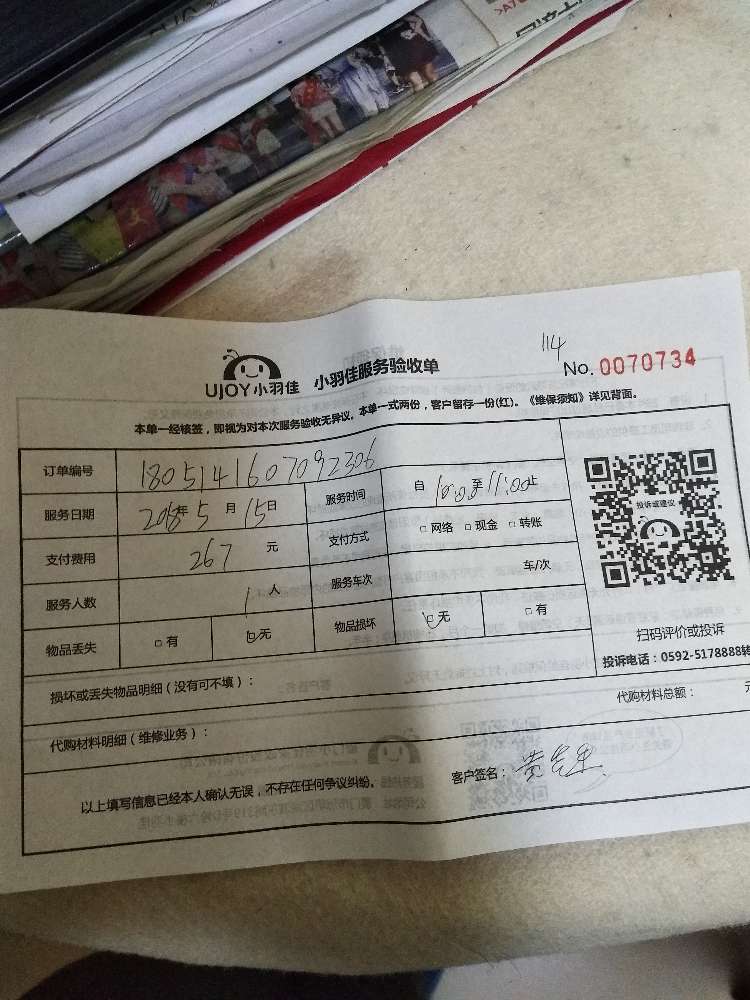 114
UJOY小羽佳 小羽佳服务验收单 No. 0070734
本单一经核签，即视为对本次服务验收无异议。本单一式两份，客户留存一份(红)。《维保须知》详见背面。
订单编号 1805141607092306 服务时间 自 10:00 至 11:00 止
服务日期 2018年 5 月 15 日 支付方式 □ 网络 □ 现金 □ 转账
支付费用 267 元 服务车次 车/次
服务人数 1 人
物品丢失 □ 有 □ 无 物品损坏 □ 无 □ 有
投诉或建议
扫码评价或投诉
投诉电话：0592-5178888转
损坏或丢失物品明细（没有可不填）：
代购材料明细（维修业务）： 代购材料总额： 元
以上填写信息已经本人确认无误，不存在任何争议纠纷。 客户签名：黄先生